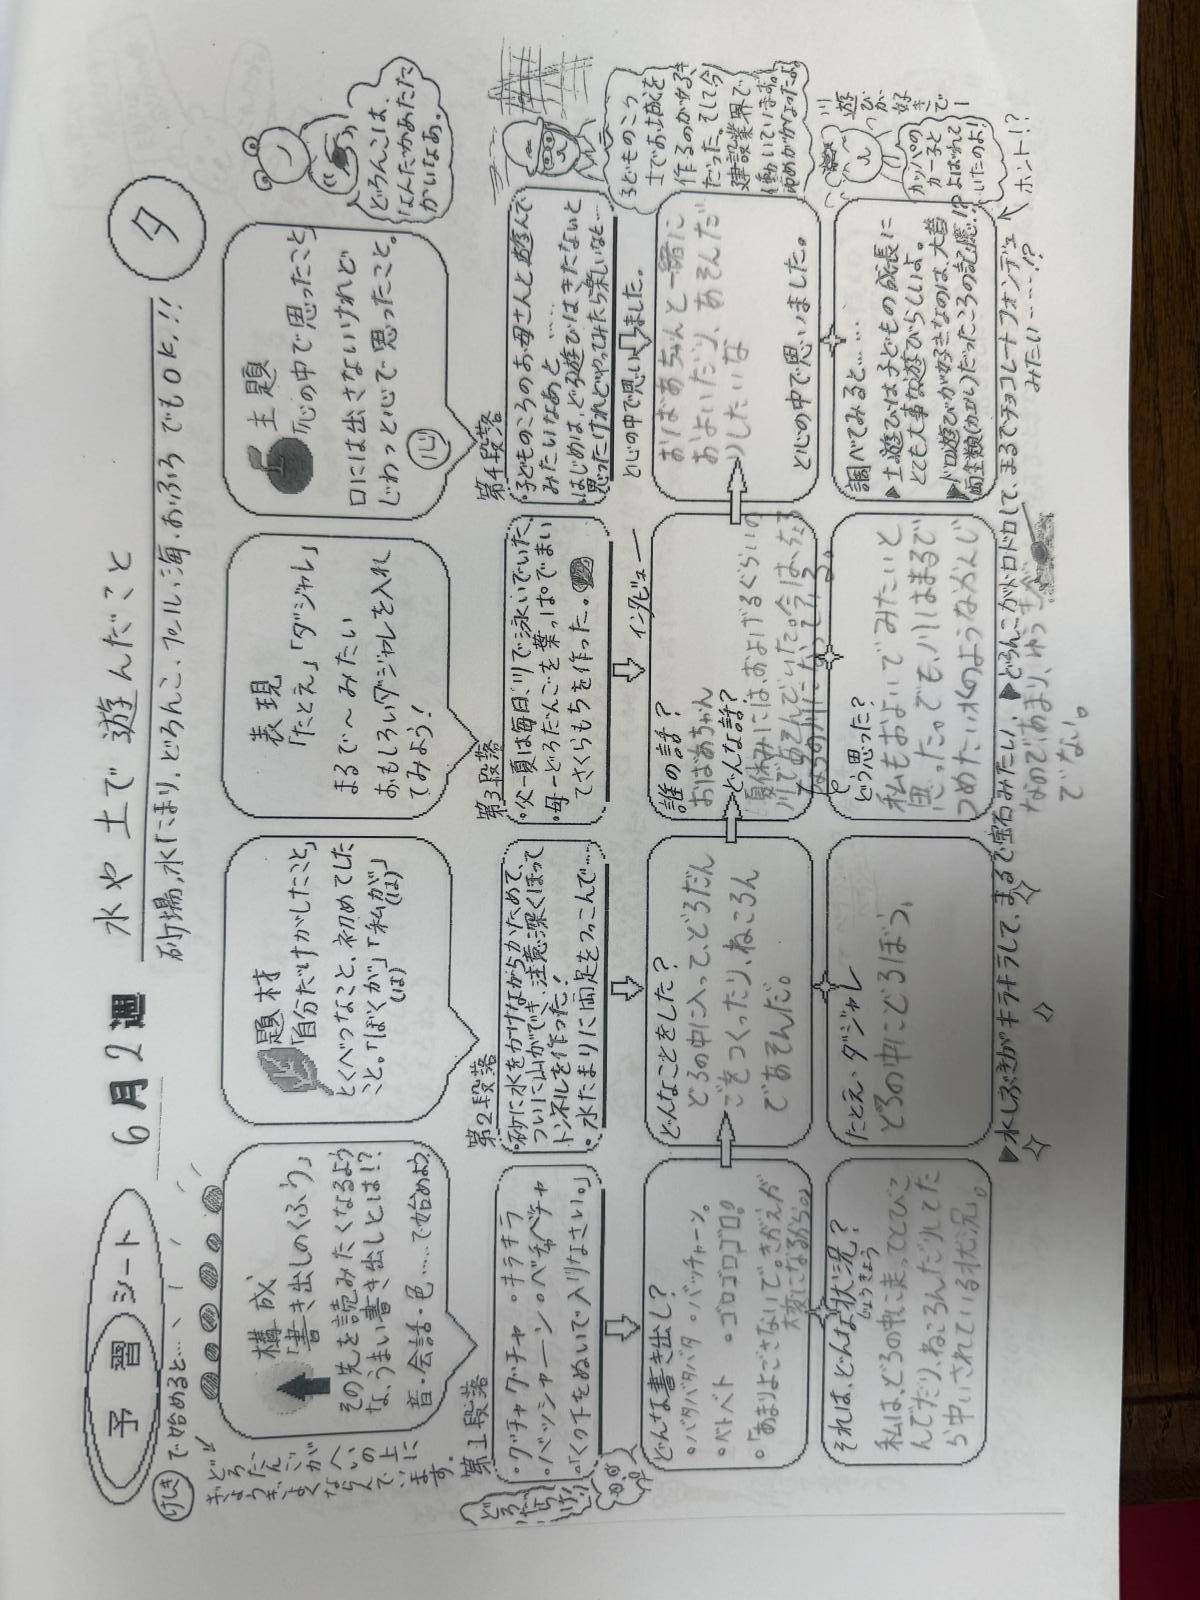 予習シート
6月2週
水や土で遊んだこと
夕
砂場、水たまり、どろんこ、プール、海、おふろでもOK!!
けしきで始めると…
どろだんごが
ぎょうぎよく
へいの上に
ならんでいます。
構成
「書き出しのくふう」
その先を読みたくなるよう
な、うまい書き出しとは!?
音・会話・色……で始めよう。
題材
「自分だけがしたこと」
とくべつなこと、初めてした
こと。「ぼくが」「私が」
(は) (は)
表現
「たとえ」「ダジャレ」
まるで〜みたい
おもしろいダジャレを入れ
てみよう!
主題
「心の中で思ったこと」
口には出さないけれど
じわっと心で思ったこと。
心
どろんこは、
なんだかあたた
かいなあ。
第1段落
・グチャグチャ ・キラキラ
・バッシャーン ・ベチャベチャ
・「くつ下をぬいで入りなさい。」
第2段落
・砂に水をかけながらかためて、
ついに山ができ、注意深くほって
トンネルを作った!
・水たまりに両足をつっこんで……
第3段落
・父―夏は毎日、川で泳いでいた。
・母―どろだんごを葉っぱでまい
てさくらもちを作った。
第4段落
・子どものころのお母さんと遊んで
みたいなあと……
・はじめは、どろ遊びはきたないと
思ったけれどやってみたら楽しいなと…
と心の中で思いました。
インタビュー
子どものころ
土でお城を
作るのが好き
だった。そして今
建設業界で
働いています。
ゆめがかなったよ。
どんな書き出し?
・バタバタバタ ・バッチャーン。
・ベトベト ・ゴロゴロゴロ。
・「あまりよごさないで。きがえが
大変になるから。」
どんなことをした?
どろの中に入って、どろだん
ごをつくったり、ねころん
であそんだ。
誰の話?
おばあちゃん
どんな話?
夏休みには、およげるぐらいの
川であそんでいた。今は、ちょろ
ちょろの川になっている。
おばあちゃんと一緒に
およいだり、あそんだ
りしたいな
と心の中で思いました。
川遊びが好きで―
カッパの
カー子と
よばれて
いたのよ!
それは、どんな状況?
じょうきょう
私は、どろの中に走ってとびこ
んでだり、ねころんだりしてた
ら中いされている状況。
たとえ・ダジャレ
どろの中にどろぼう。
どう思った?
私もおよいでみたいと
思った。でも、川はまるで
つめたい氷のようなかんじ
なのであまり、ゆうきが
でない。
調べてみると……
▶土遊びは子どもの成長に
とても大事な遊びらしいよ。
▶ドロ遊びが好きなのは、大昔
両生類(カエル)だったころの記憶…!?
ホント!?
▶水しぶきがキラキラして、まるで宝石みたい。 ▶どろんこがドロドロして、まるでチョコレートフォンデュ
みたい……!?